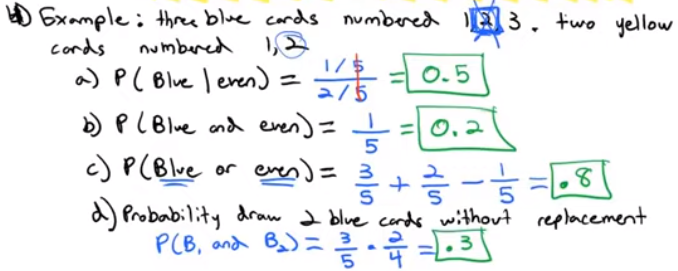 Example: three blue cards numbered 1,2,3. two yellow
cards numbered 1,2
a) P(Blue | even) = 1/5 / 2/5 = 0.5
b) P(Blue and even) = 1/5 = 0.2
c) P(Blue or even) = 3/5 + 2/5 - 1/5 = .8
d) Probability draw 2 blue cards without replacement
P(B₁ and B₂) = 3/5 · 2/4 = .3